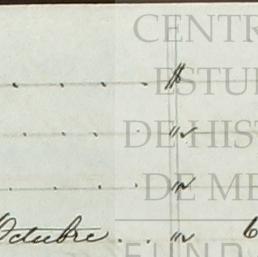 CENTR
. . . . $
ESTU
. . . . "
DE HIST
. . . . "
DE ME
Octubre . . " 6
FUND